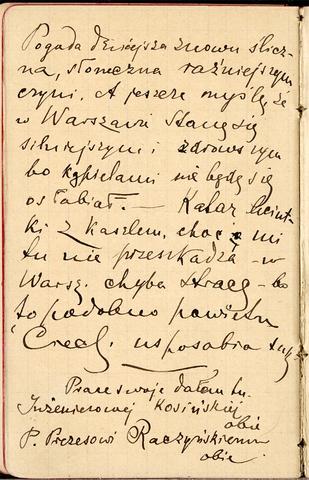 Pogoda dzisiejsza znowu ślicz-
na, słoneczna raźniejszym
czyni. A jeszcze myślę że
w Warszawie stanę się
silniejszym i zdrowszym
bo kąpielami nie będę się
osłabiał. — Katar
ki z kaszlem, choć mi
tu nie przeszkadza - w
Warsz. chyba stracę - bo
to podobno powietrze
usposabia
Prace swoje dałam tu
Inżenierowej Kosińskiej
obie
P. Prezesowi Raczyńskiemu
obie.